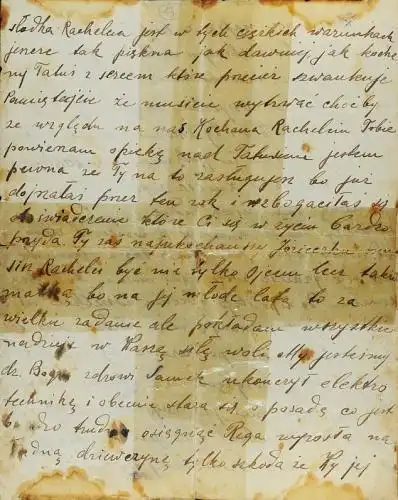 Słodka Rachelciu jest w tych ciężkich warunkach
jeszcze tak piękna jak dawniej jak kocha
ny Tatuś z sercem które przecież szwankuje
Pamiętajcie że musicie wytrwać choćby
ze względu na nas Kochana Rachelciu Tobie
powierzam opiekę nad Tatusiem jestem
pewna że Ty na to zasługujesz bo już
dojrzałaś przez ten rok i wzbogaciłaś się
doświadczeniem które Ci się w życiu bardzo
przyda Ty zaś najukochańszy mu
sisz Racheli być nie tylko ojcem lecz także
matką bo na jej młode lata to za
wielkie zadanie ale pokładam wszystkie
nadzieje w Waszą siłę woli My jesteśmy
dz. Bogu zdrowi Samek ukończył elektro
technikę i obecnie stara się o posadę co jest
bardzo trudno osiągnąć Rega wyrosła na
ładną dziewczynę tylko szkoda że Wy jej